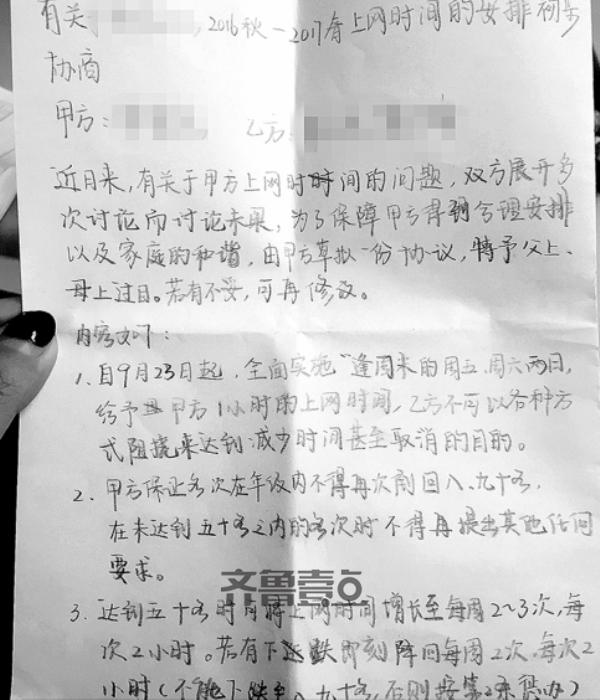 有关 2016秋-2017春上网时间的安排初步
协商
甲方: 乙方:
近日来,有关于甲方上网时时间的问题,双方展开多
次讨论而讨论未果,为了保障甲方得到合理安排
以及家庭的和谐,由甲方草拟一份协议,特予父上、
母上过目。若有不妥,可再修改。
内容如下:
1、自9月23日起,全面实施“逢周末的周五、周六两日,
给予甲方1小时的上网时间,乙方不可以各种方
式阻挠来达到减少时间甚至取消的目的。
2、甲方保证名次在年级内不得再次削回八、九十名,
在未达到五十名之内的名次时不得再提出其他任何
要求。
齐鲁壹点
3、达到五十名时将上网时间增长至每周2~3次,每
次2小时。若有下跌即刻降回每周2次,每次2
小时(不能下跌至八九十名,否则按第2条代办)